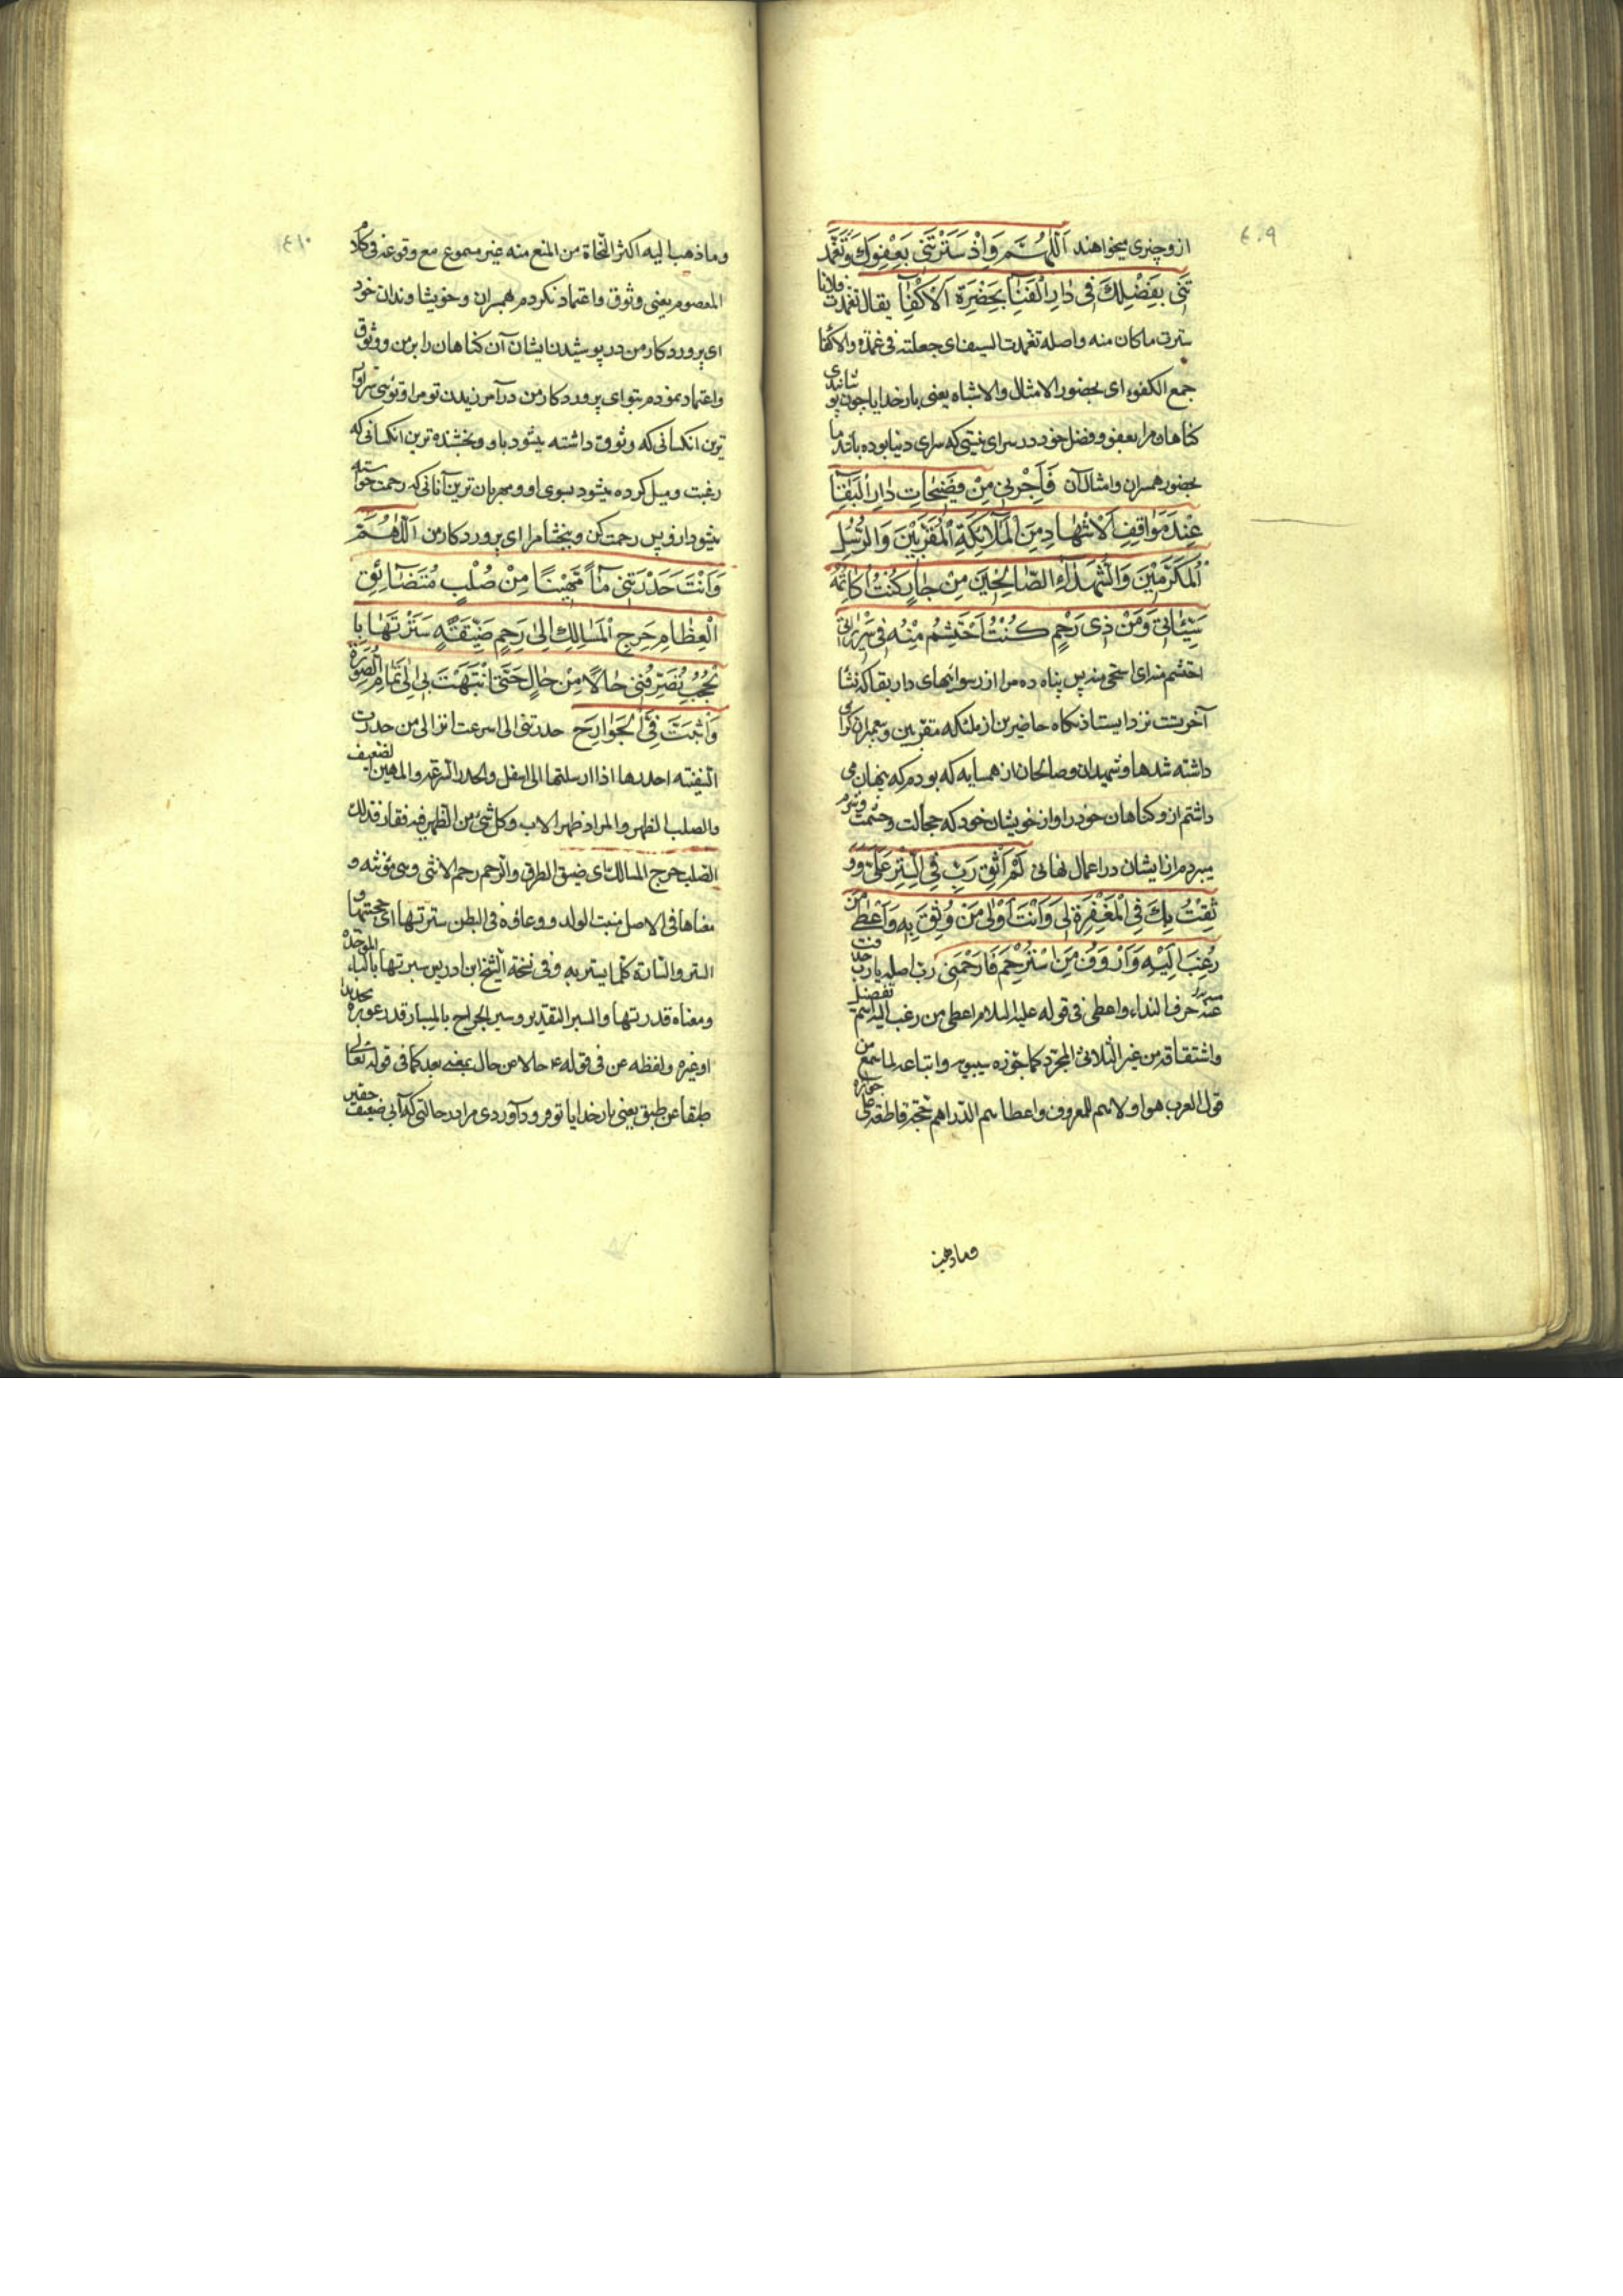 ٤٠٩
ازو چیزی میخواهند اَللّهُمَّ وَاِذْ سَتَرْتَنی بِعَفْوِكَ وَتَغَمَّدْ
تَنی بِفَضْلِكَ فی دارِ الْفَنآءِ بِحَضْرَةِ الْاَكْفآءِ یقال تغمدت فلانا
سترت ماكان منه واصله تغمدت السیف ای جعلته فی غمده والاكفا
جمع الكفوء ای بحضور الامثال والاشباه یعنی بار خدایا چون پوشانیدی
كناهان مرا بعفو و فضل خود در سرای نیستی كه سرای دنیا بوده باشد
بحضور همسران و امثال آن فَاَجِرْنی مِنْ فَضیحاتِ دارِ الْبَقآءِ
عِنْدَ مَواقِفِ الْاَشْهادِ مِنَ الْمَلآئِكَةِ الْمُقَرَّبینَ وَالرُّسُلِ
الْمُكَرَّمینَ وَالشُّهَدآءِ الصّالِحینَ مِنْ جارٍ كُنْتُ اُكاتِمُهُ
سَیِّئاتی وَمِنْ ذی رَحِمٍ كُنْتُ اَحْتَشِمُ مِنْهُ فی سَریراتی
احتشم منه ای استحی منه پس پناه ده مرا از رسوائیهای دار بقا كه نشا
آخرتست نزد ایستادنكاه حاضرین از ملئكه مقربین و پیغمبران كرامی
داشته شدها و شهیدان و صالحان از همسایه كه بودم كه پنهان می
داشتم ازو كناهان خود را و از خویشان خود كه خجالت و حشمت و شرم
میبردم از ایشان در اعمال نهانی لَمْ اَثِقْ رَبِّ فِی السِّتْرِ عَلَیَّ وَوَ
ثِقْتُ بِكَ فِی الْمَغْفِرَةِ لی وَاَنْتَ اَوْلی مَنْ وُثِقَ بِهِ وَاَعْطی مَنْ
رُغِبَ اِلَیْهِ وَاَرْؤَفُ مَنِ اسْتُرْحِمَ فَارْحَمْنی ربّ اصله یا رب حذفت
عنه حرف النداء واعطی فی قوله علیه السلام اعطی من رغب الیه اسم تفضیل
واشتقاقه من غیر الثلاثی المجرد كما جوزه سیبویه واتباعه لما سمع من
قول العرب هو اولاهم للمعروف واعطاهم الدراهم
وماذهب
٤١٠
وماذهب الیه اكثر النحاة من المنع منه غیر مسموع مع وقوعه فی كلام
المعصوم یعنی وثوق و اعتماد نكردم بر همسران و خویشاوندان خود
ای پروردكار من در پوشیدن ایشان آن كناهان را بر من و وثوق
و اعتماد نمودم بتو ای پروردكار من در آمرزیدن تو مرا و توئی سزاوار
ترین آنكسانی كه وثوق داشته میشود باو و بخشنده ترین آنكسانی كه
رغبت و میل كرده میشود بسوی او و مهربان ترین آنانی كه رحمت خواسته
میشود ازو پس رحمت كن و ببخشا مرا ای پروردكار من اَللّهُمَّ
وَاَنْتَ حَدَرْتَنی مآءً مَهینًا مِنْ صُلْبٍ مُتَضآئِقِ
الْعِظامِ حَرِجِ الْمَسالِكِ اِلی رَحِمٍ ضَیِّقَةٍ سَتَرْتَها بِا
لْحُجُبِ تُصَرِّفُنی حالًا مِنْ حالٍ حَتّی انْتَهَیْتَ بی اِلی تَمامِ الصُّورَةِ
وَاَثْبَتَّ فِیَّ الْجَوارِحَ حدرتنی ای اسرعت انزالی من حدرت
السفینة احدرها اذا ارسلتها الی اسفل والحدر السرعة والمهین الضعیف
والصلب الظهر والمراد ظهر الاب وكل شئ من الظهر فیه فقار فذلك
الصلب حرج المسالك ای ضیق الطرق والرحم رحم الانثی وهی مؤنثه و
معناها فی الاصل منبت الولد ووعاؤه فی البطن سترتها ای حجبتها و
الستر والستارة كلما یستر به وفی نسخة الشیخ ابن ادریس سبرتها بالباء الموحدة
ومعناه قدرتها والسبر التقدیر وسبر الجراح بالمسبار قدر غوره بحدیدة
او غیره ولفظه من فی قوله ع حالا من حال بمعنی بعد كما فی قوله تعالی
طبقا عن طبق یعنی بار خدایا تو فرود آوردی مرا در حالتی كه آبی ضعیف حقیر